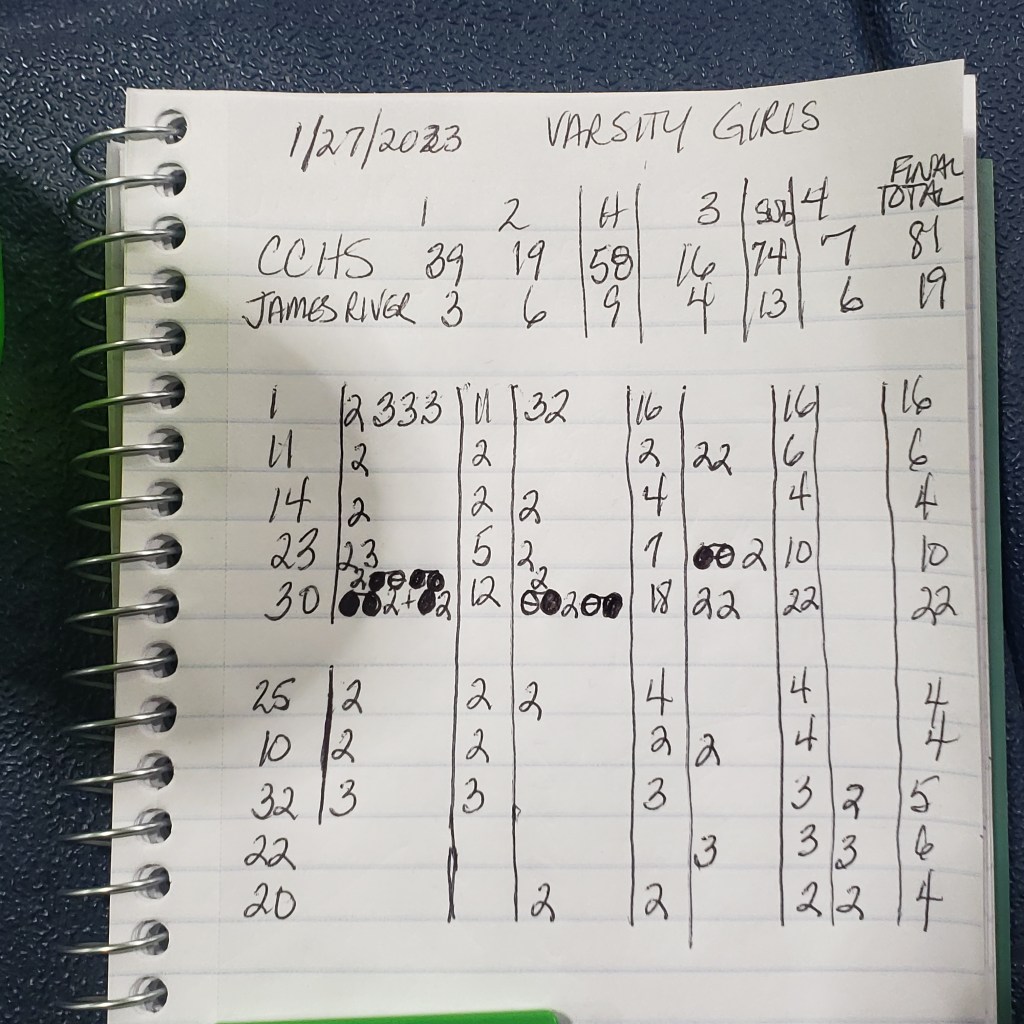 1/27/2023 VARSITY GIRLS
1 2 H 3 SUB 4 FINAL TOTAL
CCHS 39 19 58 16 74 7 81
JAMES RIVER 3 6 9 4 13 6 19
1 2 3 3 3 11 3 2 16 16 16
11 2 2 2 2 2 6 6
14 2 2 2 4 4 4
23 2 3 5 2 7 2 10 10
30 2 2 + 2 12 2 2 18 2 2 22 22
25 2 2 2 4 4 4
10 2 2 2 2 4 4
32 3 3 3 3 2 5
22 3 3 3 6
20 2 2 2 2 4